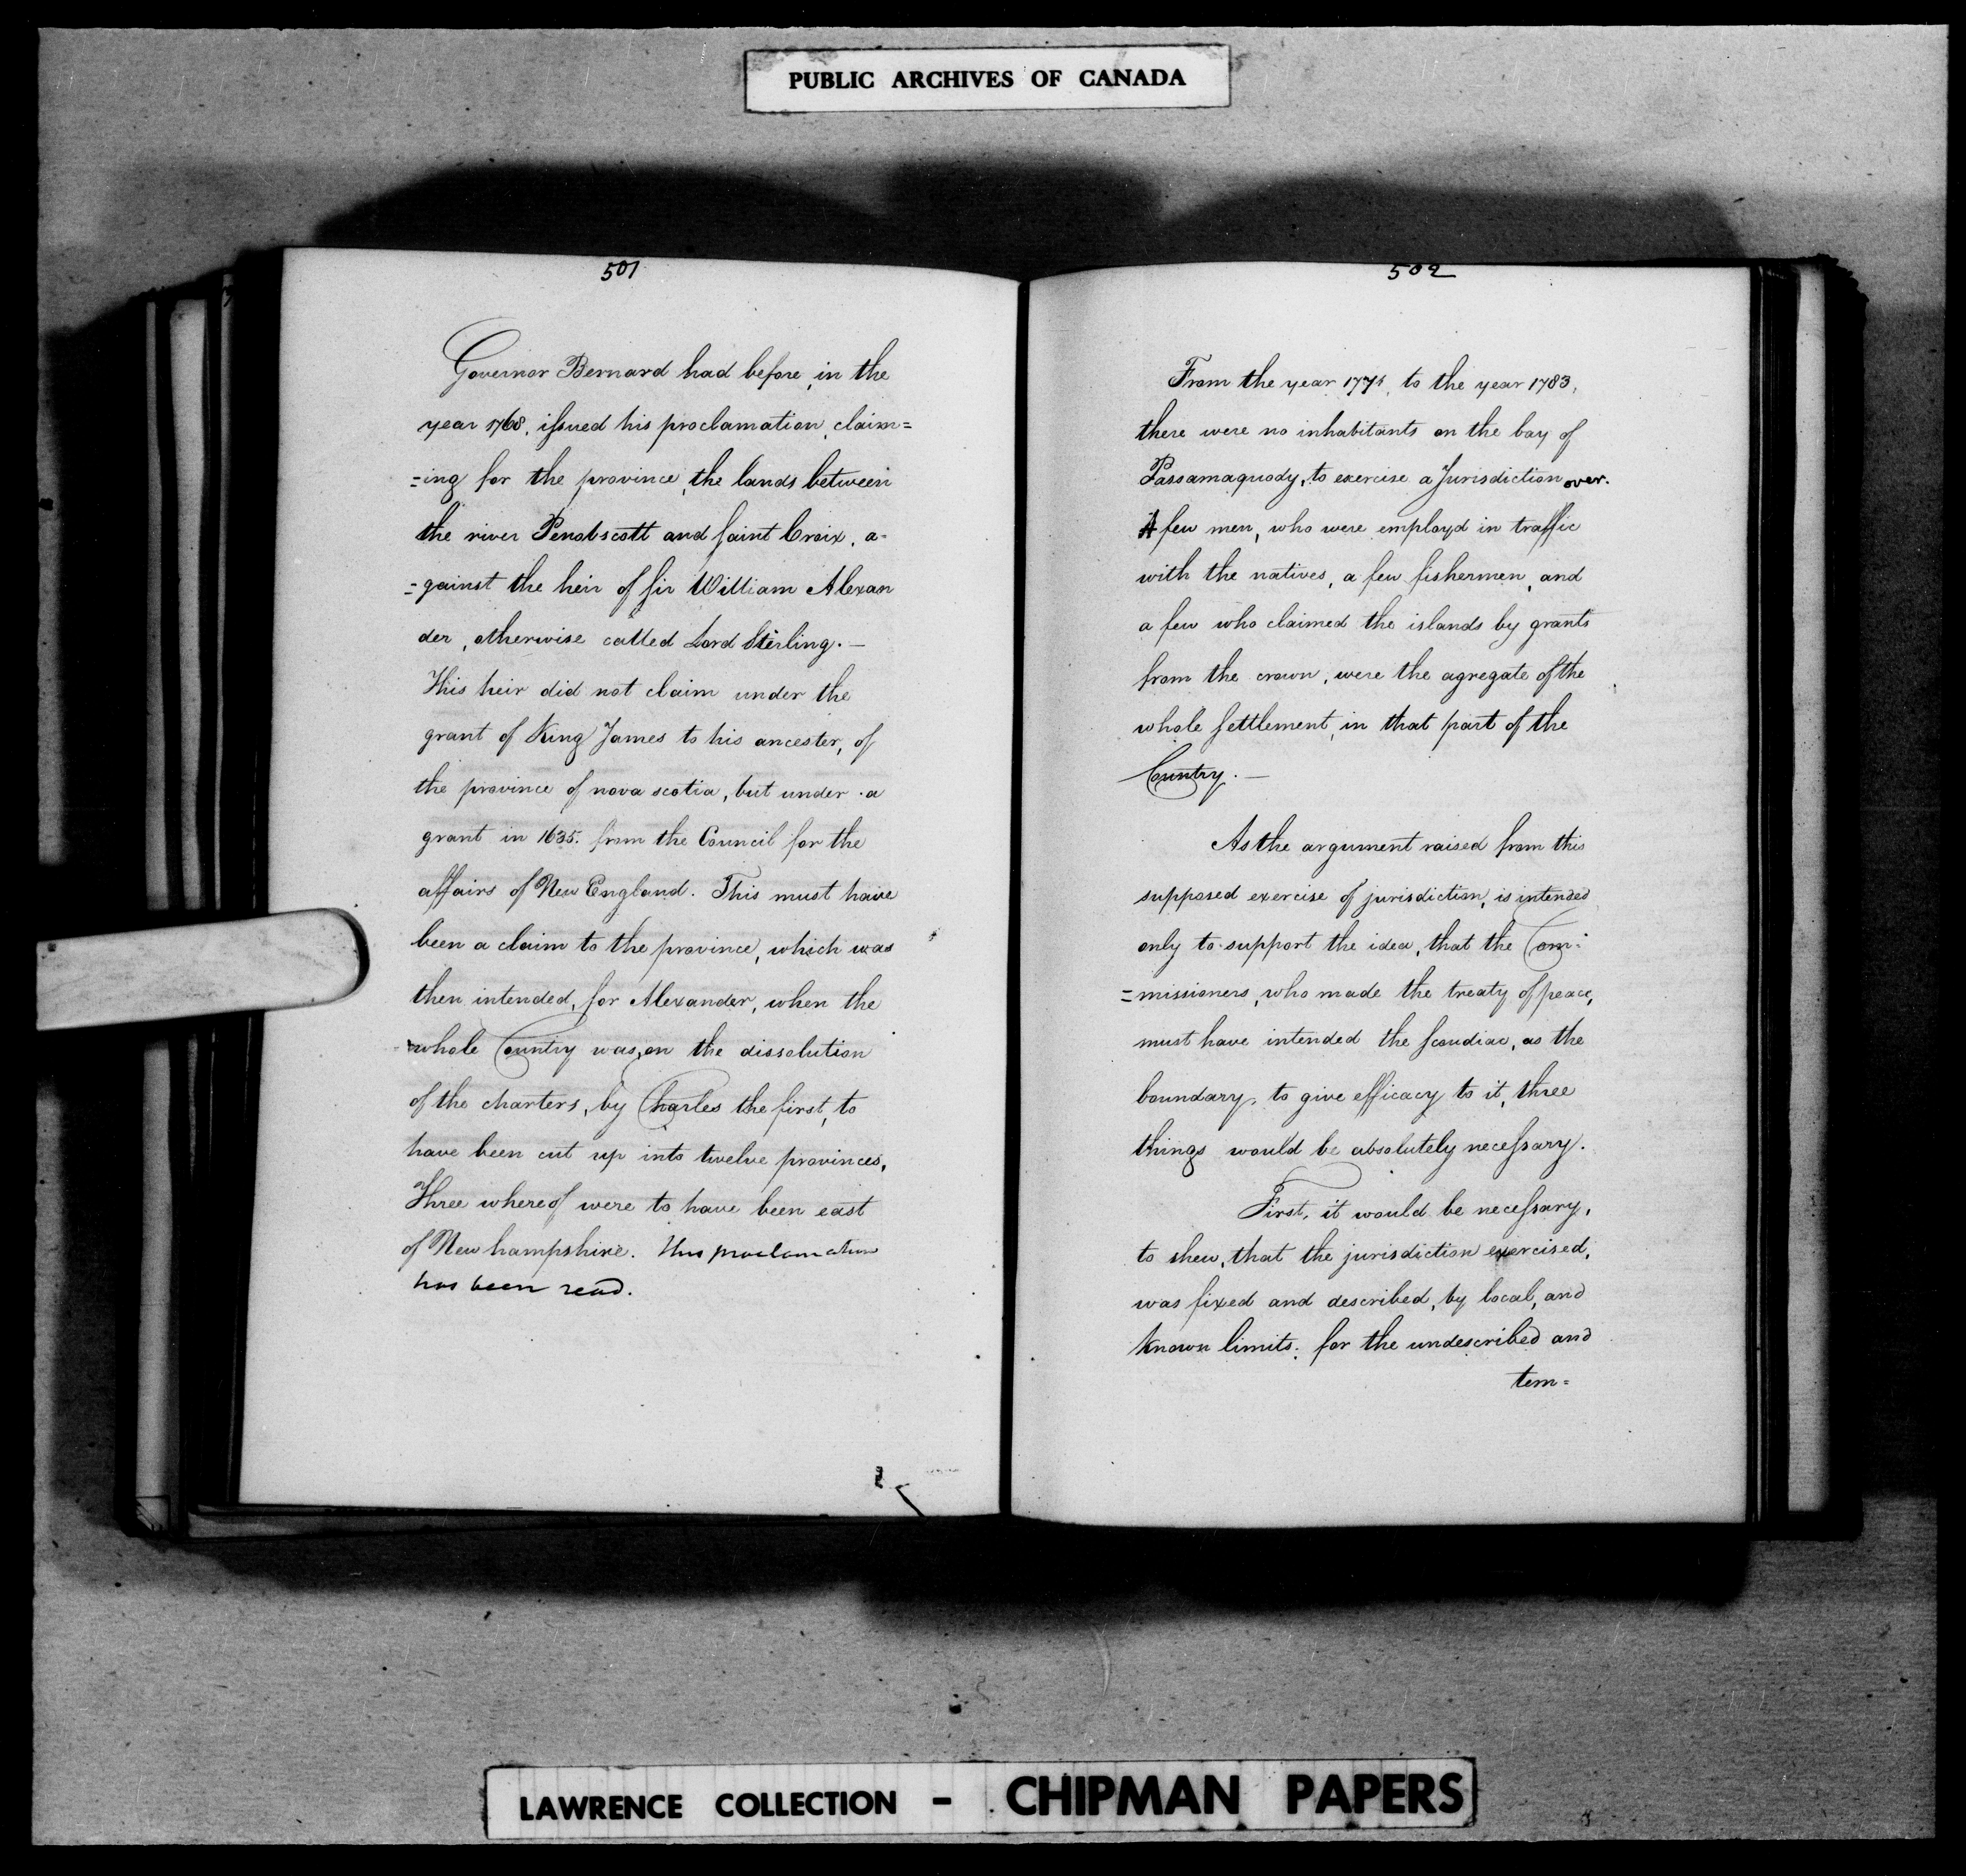 PUBLIC ARCHIVES OF CANADA
501
Governor Bernard had before, in the
year 1768, issued his proclamation, claim=
=ing for the province, the lands between
the river Penobscott and Saint Croix, a=
=gainst the heir of Sir William Alexan
der, otherwise called Lord Sterling. —
This heir did not claim under the
grant of King James to his ancester, of
the province of nova scotia, but under a
grant in 1635. from the Council for the
affairs of New England. This must have
been a claim to the province, which was
then intended, for Alexander, when the
whole Country was, on the dissolution
of the charters, by Charles the first, to
have been cut up into twelve provinces,
Three whereof were to have been east
of New hampshire. This proclamation
has been read.
502
From the year to the year 1783,
there were no inhabitants on the bay of
Passamaquody, to exercise a Jurisdiction over.
A few men, who were employd in traffic
with the natives, a few fishermen, and
a few who claimed the islands by grants
from the crown, were the agregate of the
whole Settlement, in that part of the
Country. —
As the argument raised from this
supposed exercise of jurisdiction, is intended
only to support the idea, that the Com=
=missioners, who made the treaty of peace,
must have intended the Scoudiac, as the
boundary, to give efficacy to it, three
things would be absolutely necessary.
First, it would be necessary,
to shew, that the jurisdiction exercised,
was fixed and described, by local, and
known limits; for the undescribed and
tem=
LAWRENCE COLLECTION - CHIPMAN PAPERS